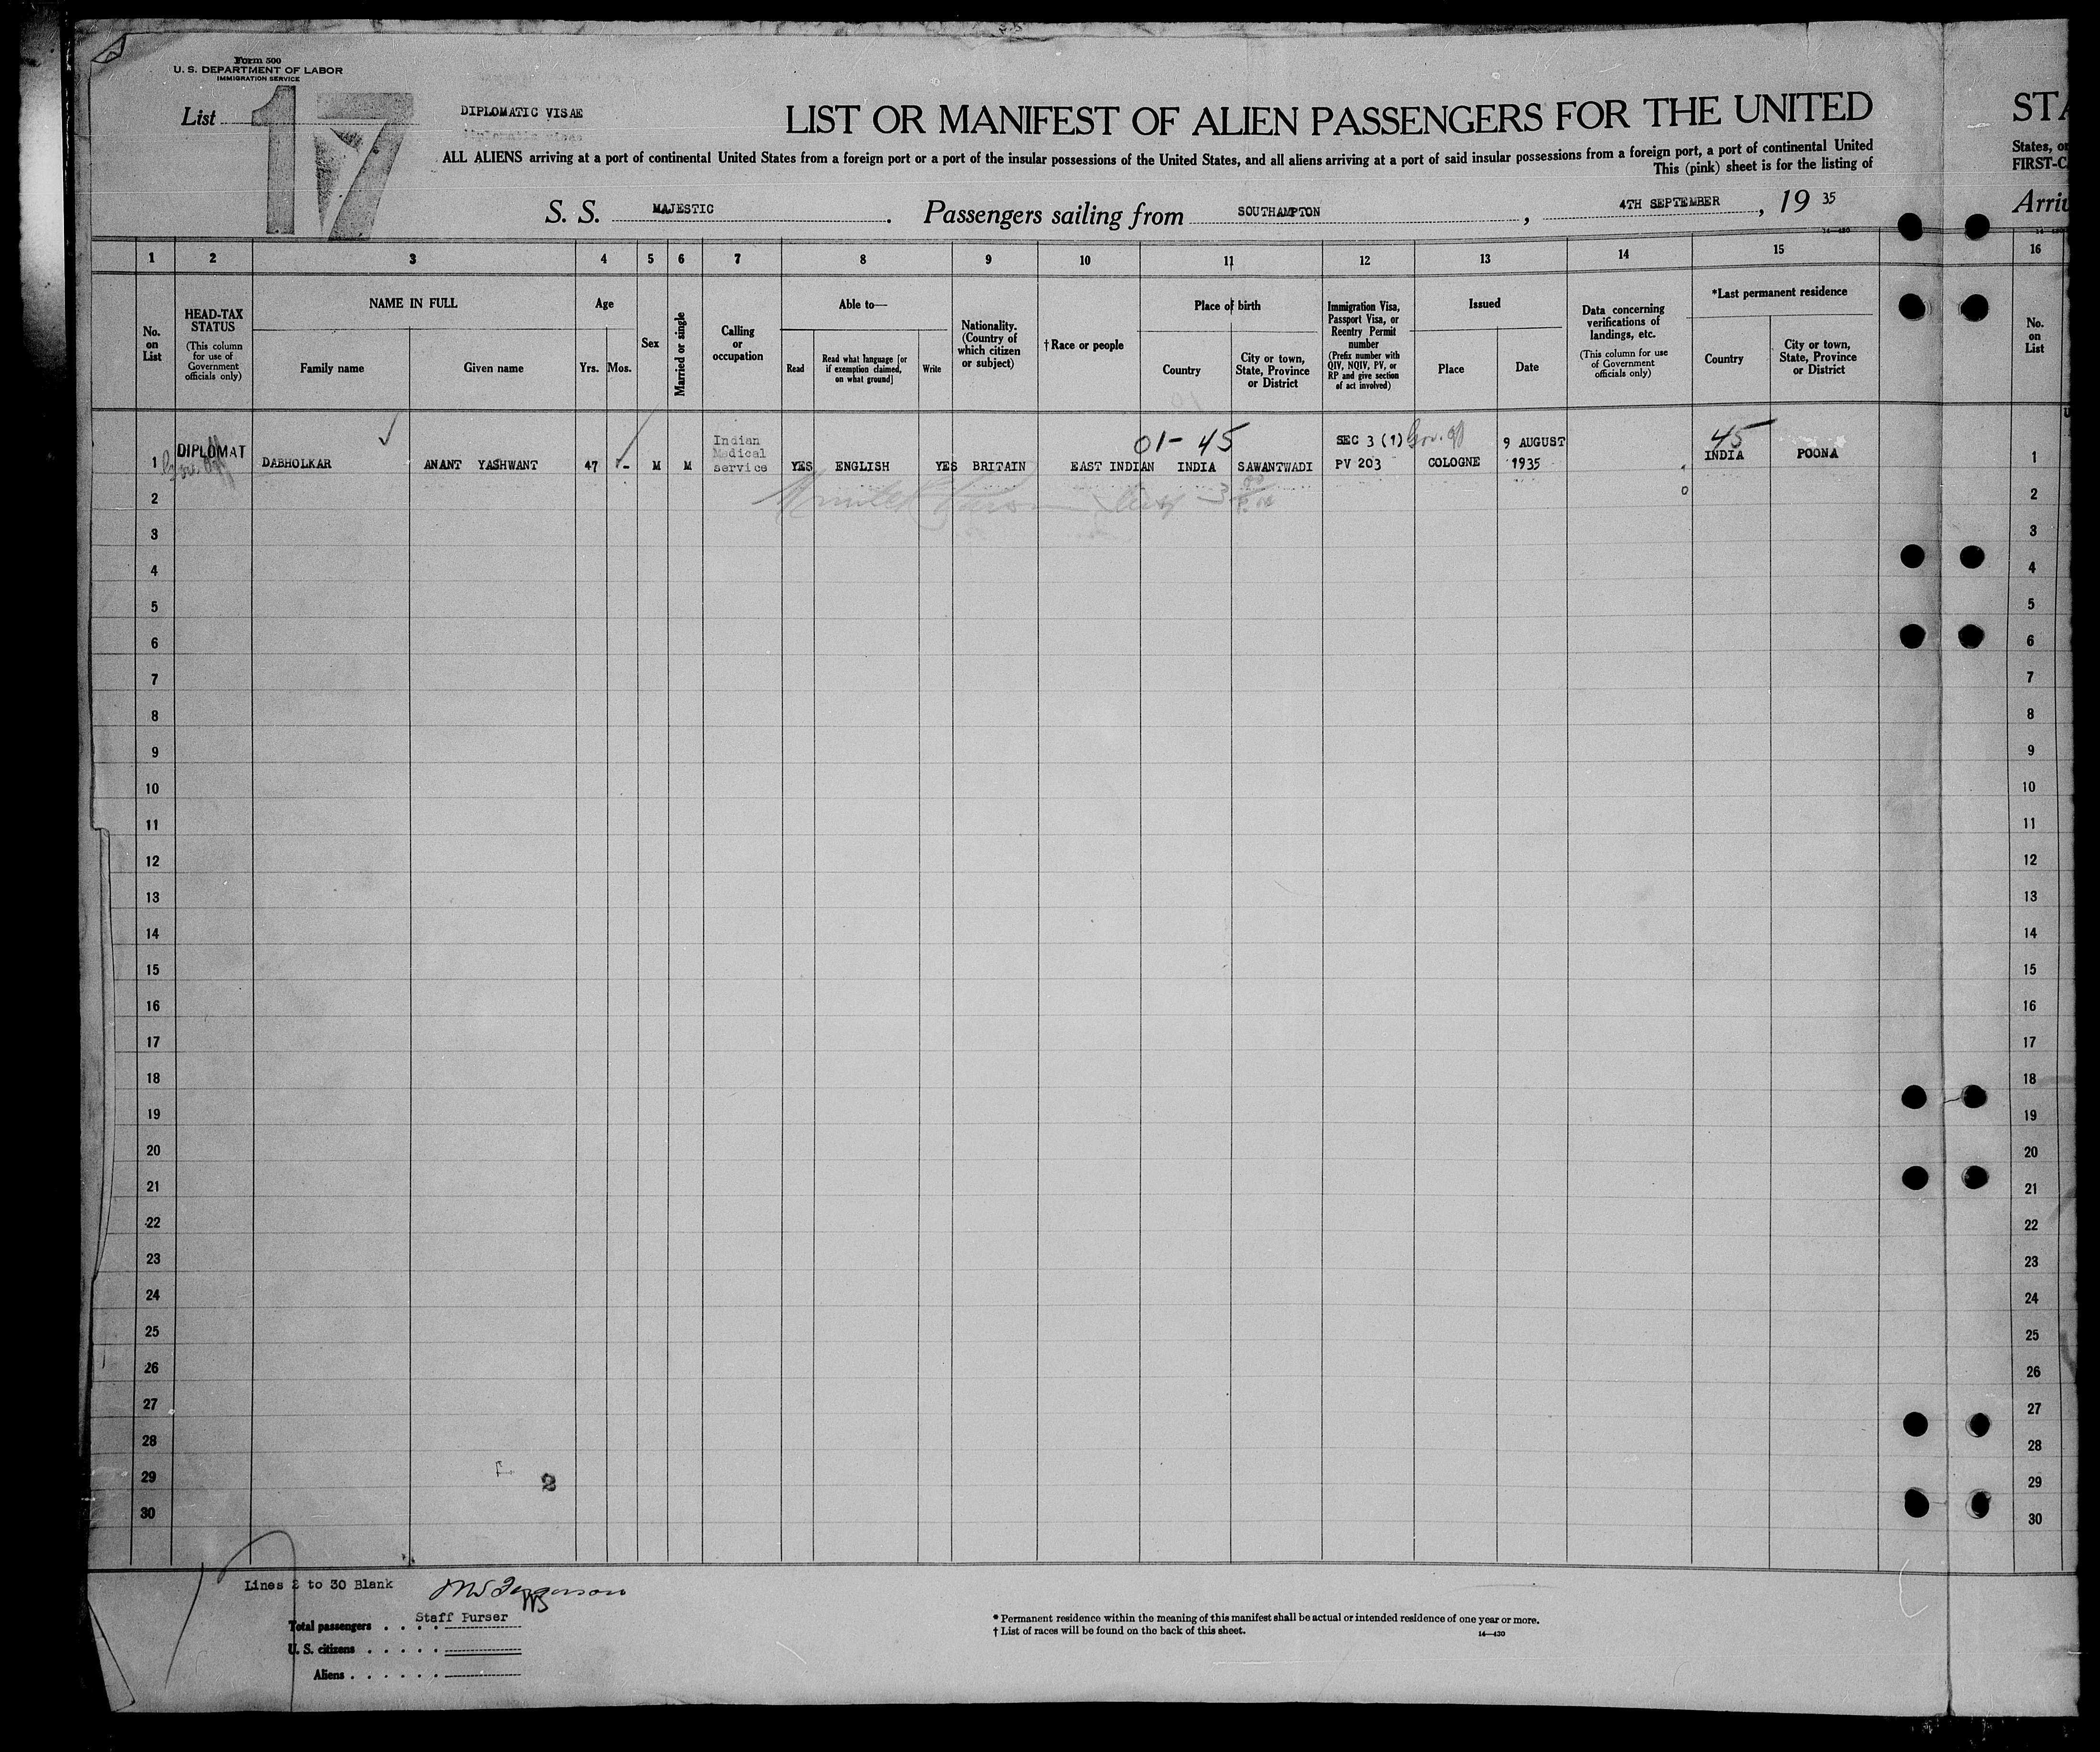 Form 500
U. S. DEPARTMENT OF LABOR
IMMIGRATION SERVICE
List 17
DIPLOMATIC VISAE
LIST OR MANIFEST OF ALIEN PASSENGERS FOR THE UNITED
ALL ALIENS arriving at a port of continental United States from a foreign port or a port of the insular possessions of the United States, and all aliens arriving at a port of said insular possessions from a foreign port, a port of continental United
This (pink) sheet is for the listing of
S. S. MAJESTIC. Passengers sailing from SOUTHAMPTON, 4TH SEPTEMBER, 19 35
STA
States, or
FIRST-C
Arriv
1 2 3 4 5 6 7 8 9 10 11 12 13 14 15 16
No. on List
HEAD-TAX STATUS
(This column for use of Government officials only)
NAME IN FULL
Family name
Given name
Age
Yrs. Mos.
Sex
Married or single
Calling or occupation
Able to—
Read
Read what language [or if exemption claimed, on what ground]
Write
Nationality. (Country of which citizen or subject)
†Race or people
Place of birth
Country
City or town, State, Province or District
Immigration Visa, Passport Visa, or Reentry Permit number
(Prefix number with QIV, NQIV, PV, or RP and give section of act involved)
Issued
Place
Date
Data concerning verifications of landings, etc.
(This column for use of Government officials only)
*Last permanent residence
Country
City or town, State, Province or District
No. on List
DIPLOMAT
Indian Medical service
01- 45
SEC 3 (1) Gov. off
9 AUGUST
45
1 DABHOLKAR ANANT YASHWANT 47 - M M YES ENGLISH YES BRITAIN EAST INDIAN INDIA SAWANTWADI PV 203 COLOGNE 1935 INDIA POONA 1
2 2
3 3
4 4
5 5
6 6
7 7
8 8
9 9
10 10
11 11
12 12
13 13
14 14
15 15
16 16
17 17
18 18
19 19
20 20
21 21
22 22
23 23
24 24
25 25
26 26
27 27
28 28
29 2 29
30 30
Lines 2 to 30 Blank
Staff Purser
Total passengers
U. S. citizens
Aliens
* Permanent residence within the meaning of this manifest shall be actual or intended residence of one year or more.
† List of races will be found on the back of this sheet.
14—430